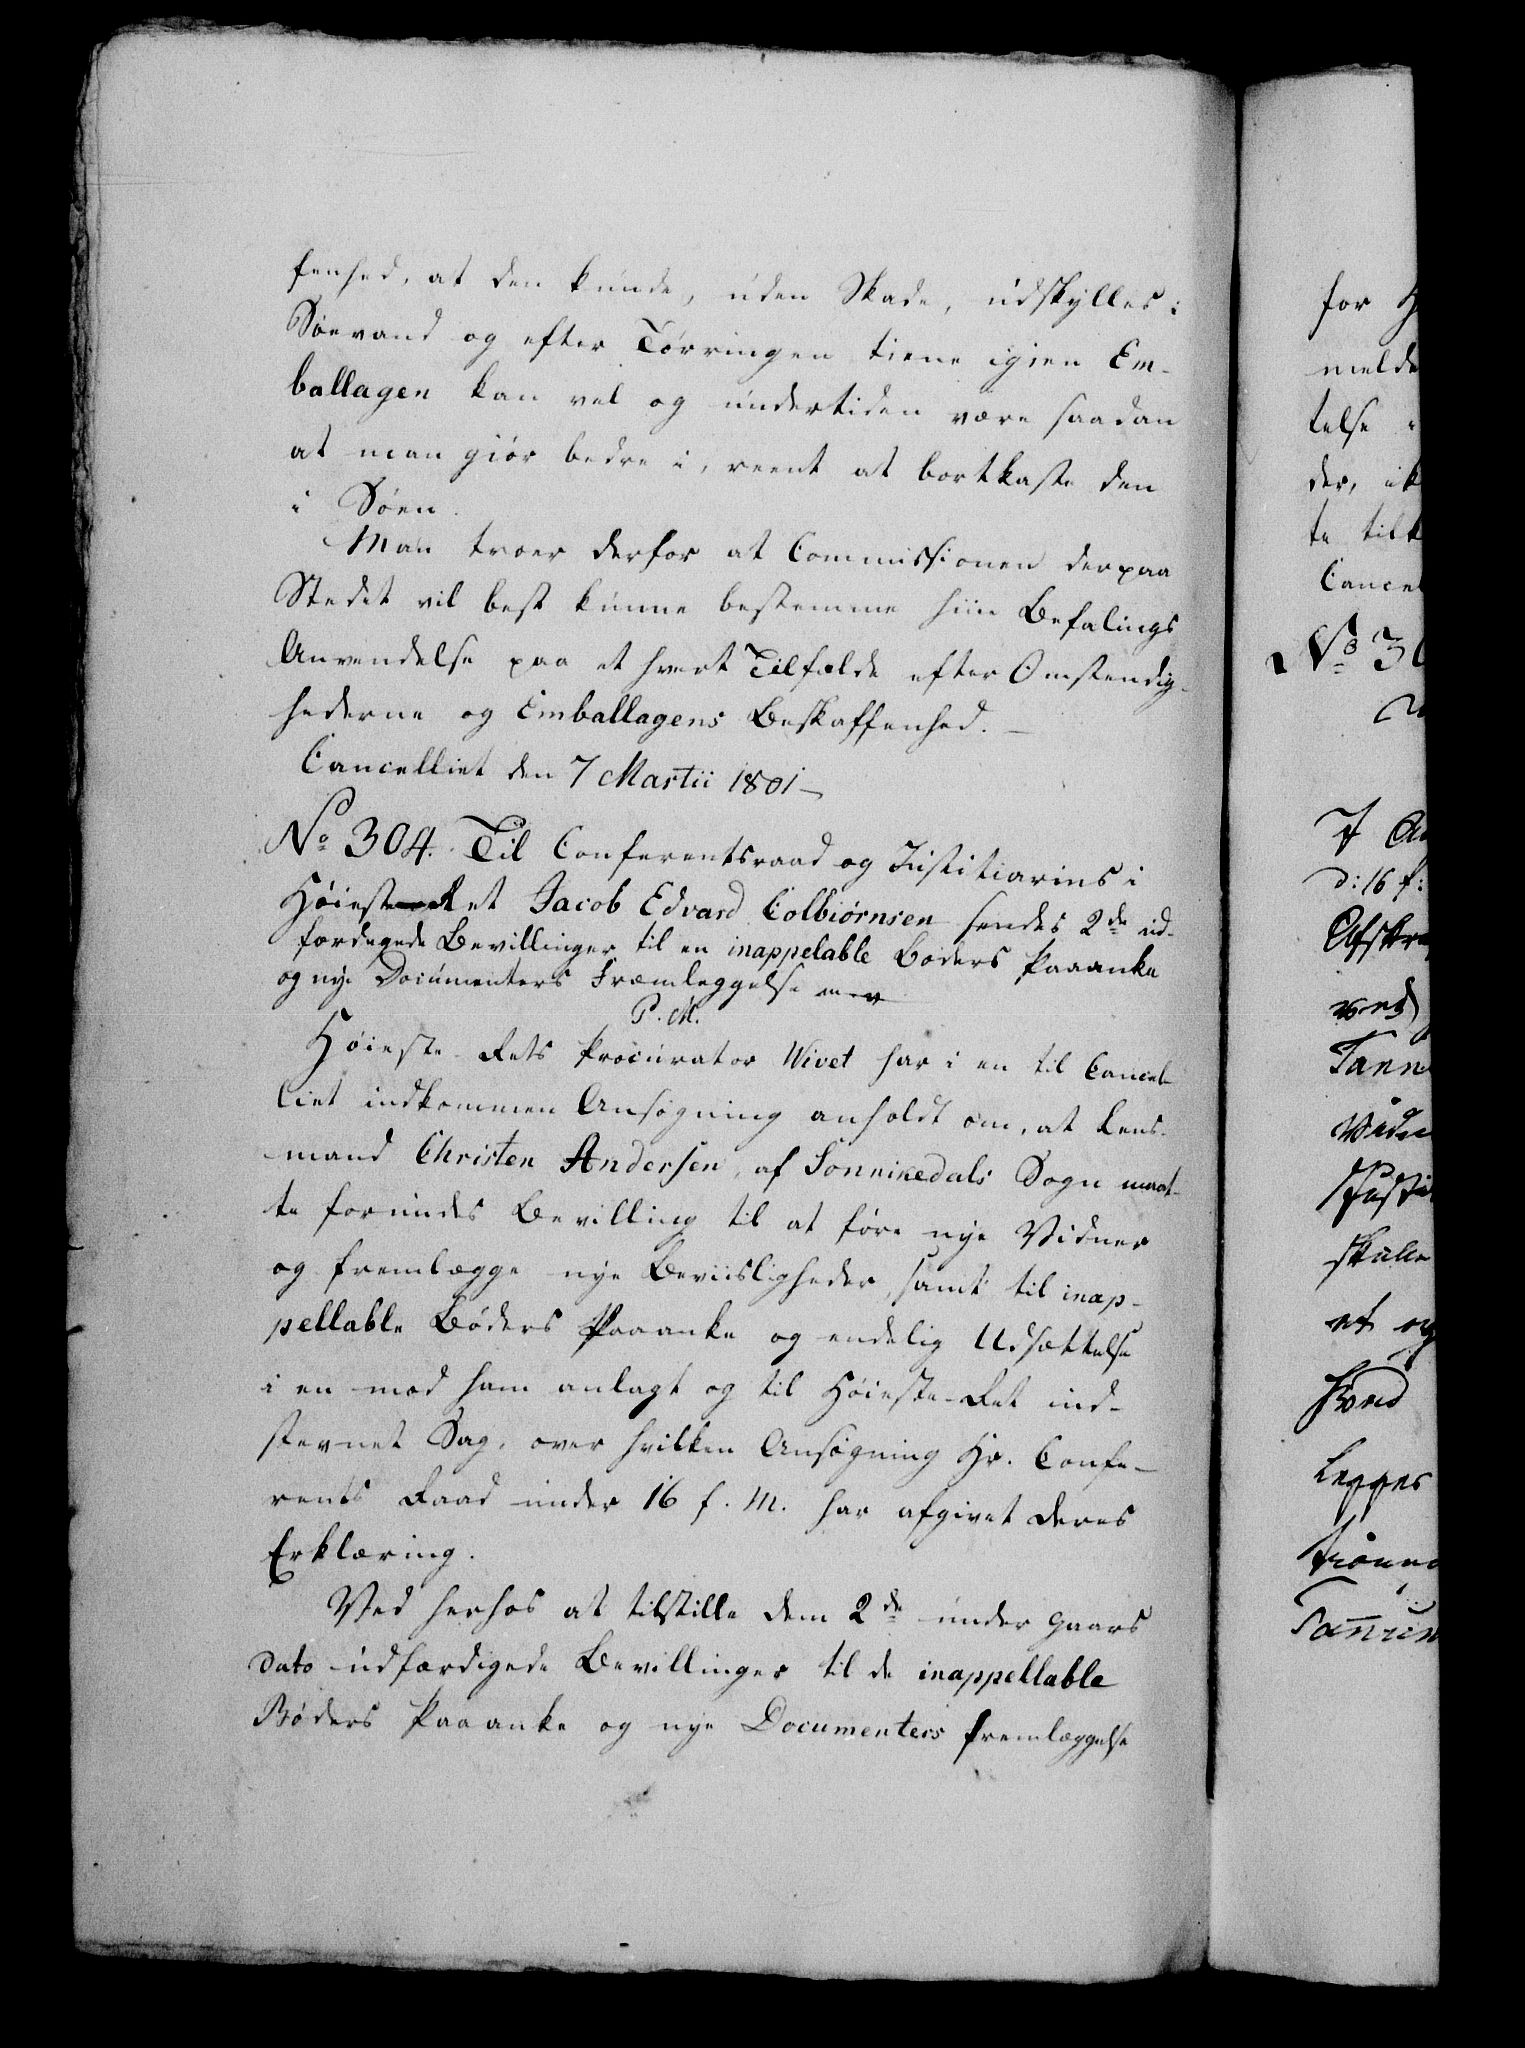 fenhed, at den kunde, uden Skade, udskylles i
Søevand og efter Tørringen tiene igien Em-
ballagen kan vel og undertiden være saadan
at man giør bedre i, reent at bortkaste den
i Søen.
Man troer derfor at Commissionen derpaa
Stedet vil best kunne bestemme hiin Befalings
Anvendelse paa et hvert Tilfælde efter Omstendig-
hederne og Emballagens Beskaffenhed. —
Cancelliet den 7 Martii 1801 —
No 304. Til Conferentsraad og Justitiarius i
Høiesteret Jacob Edvard Colbiørnsen sendes 2de ud-
færdigede Bevillinger til en inappelable Bøders Paaanke
og nye Documenters Fremleggelse
P. M.
Høieste-Rets Procurator Wivet har i en til Cancel-
liet indkommen Ansøgning anholdt om, at Lens-
mand Christen Andersen, af Sonnikedals Sogn maat-
te forundes Bevilling til at føre nye Vidner
og fremlægge nye Beviisligheder, samt til inap-
pellable Bøders Paaanke og endelig Udsættelse
i en mod ham anlagt og til Høieste-Ret ind-
stevnet Sag, over hvilken Ansøgning Hr. Confe-
rents Raad under 16 f. M. har afgivet Deres
Erklæring.
Ved herhos at tilstille Dem 2de under Gaars
Dato udfærdigede Bevillinger til de inappellable
Bøders Paaanke og nye Documenters fremlæggelse
for
melde
telse
der, ik
te tilk
Cancel
No 30
d: 16 f:
Afskr
ved
Tann
Vidn
skulle
et og
hvad
Legges